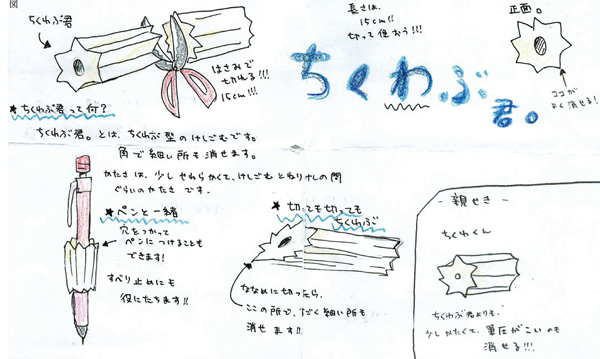 図
ちくわぶ君
はさみで
切れる!!!
15cm!!!
長さは、
15cm!!
切って使おう!!!
正面。
ココが
よく消せる!
ちくわぶ君。
★ちくわぶ君って何?
ちくわぶ君。とは、ちくわぶ型のけしごむです。
角で細い所も消せます。
かたさは、少しやわらかくて、けしごむとねりけしの間
ぐらいのかたさです。
★ペンと一緒
穴をつかって
ペンにつけることも
できます!
すべり止めにも
役にたちます!!
★切っても切っても
ちくわぶ
ななめに切ったら、
ここの所で、すごく細い所も
消せます!!
- 親せき -
ちくわくん
ちくわぶ君よりも、
少しかたくて、筆圧がこいのも
消せる!!!